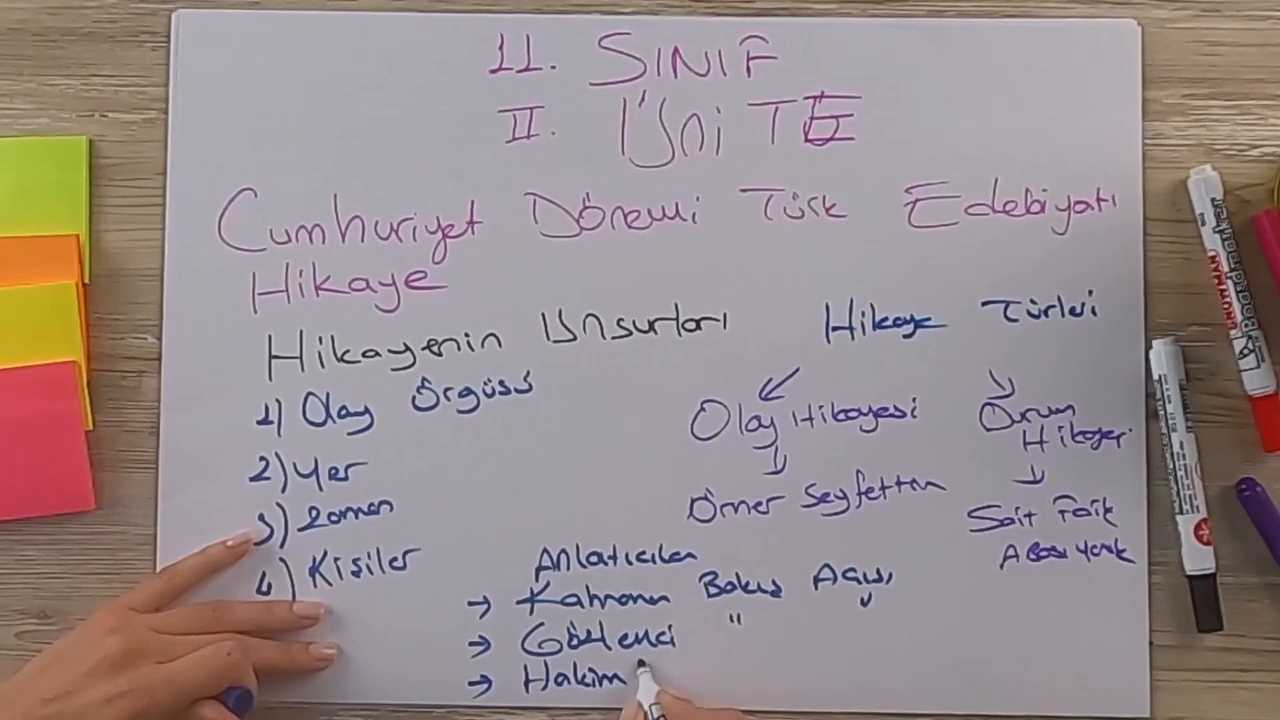 11. SINIF
II. ÜNiTE
Cumhuriyet Dönemi Türk Edebiyatı
Hikaye
Hikayenin Unsurları
1) Olay Örgüsü
2) Yer
3) Zaman
4) Kişiler
Hikaye Türleri
Olay Hikayesi
Ömer Seyfettin
Durum
Hikayesi
Sait Faik
Abasıyanık
Anlatıcılar
→ Kahraman Bakış Açısı
→ Gözlemci "
→ Hakim
UNOWMAN
Board marker